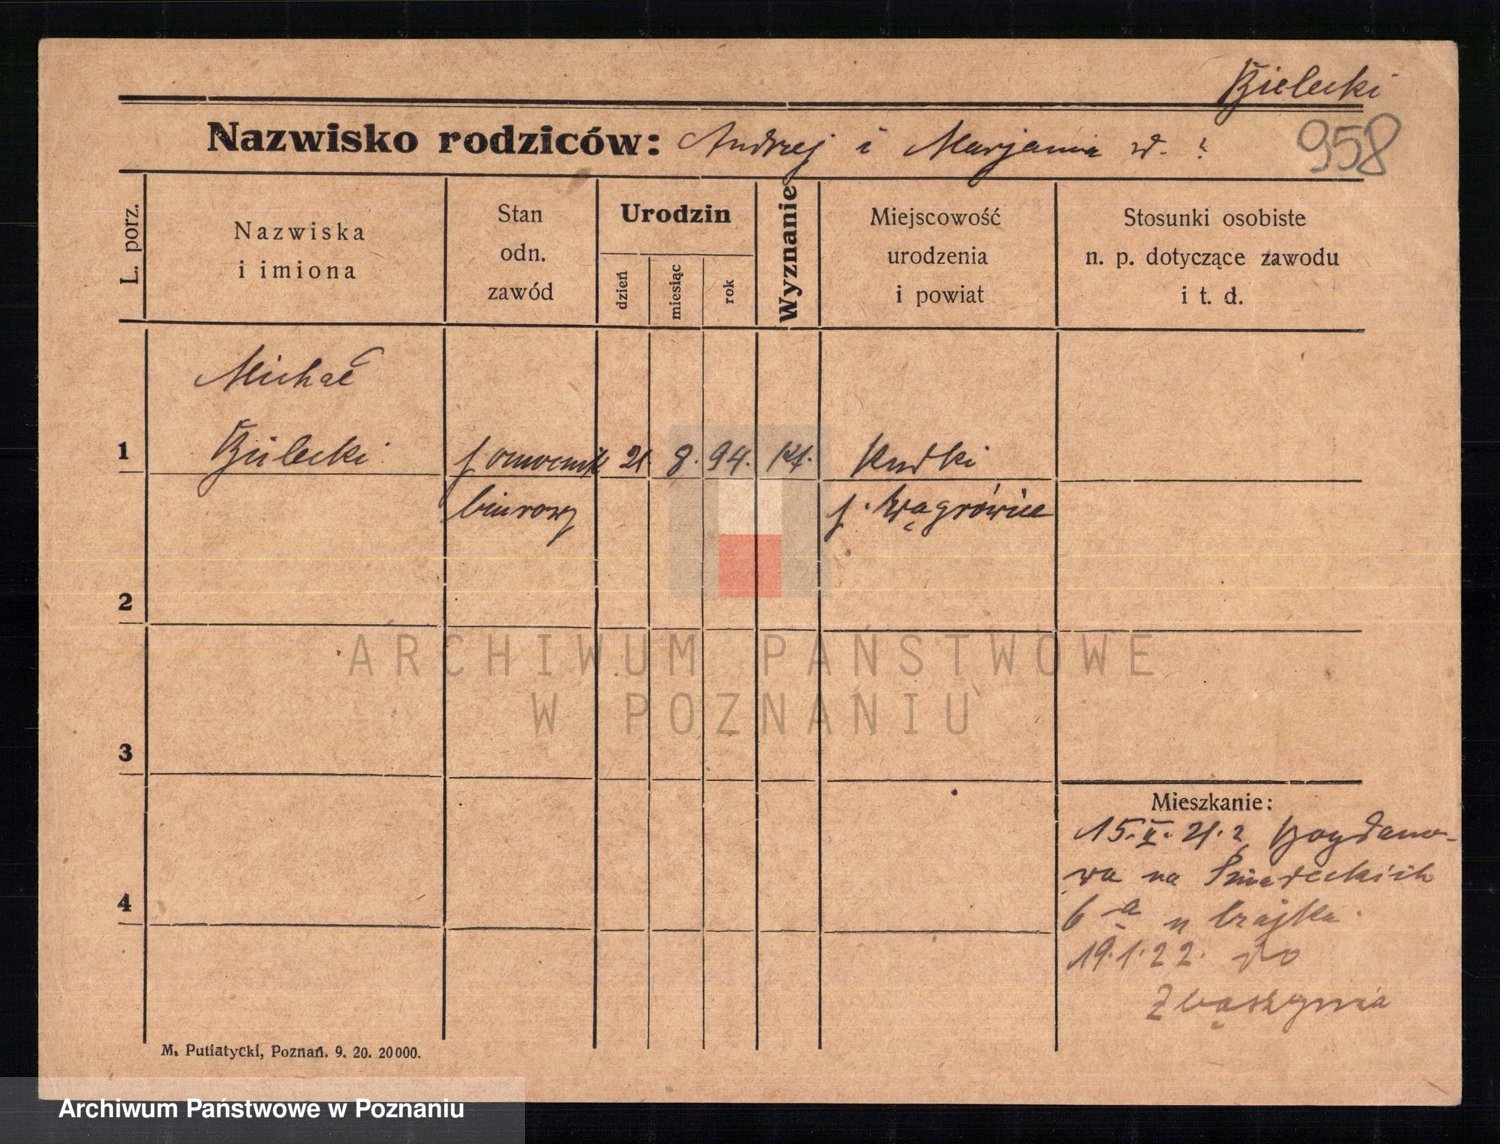 Bielecki
Nazwisko rodziców: Andrzej i Marjanna d. ?
958
L. porz.
Nazwiska
i imiona
Stan
odn.
zawód
Urodzin
dzień
miesiąc
rok
Wyznanie
Miejscowość
urodzenia
i powiat
Stosunki osobiste
n. p. dotyczące zawodu
i t. d.
Michał
1 Bielecki pomocnik 21. 8. 94. kt. Rudki
biurowy p. Wągrówiec
2
3
4
Mieszkanie:
15.X.21. z Bogdano-
wa na Śniadeckich
6 a u
19.1.22. do
Zbąszynia
M. Putiatycki, Poznań. 9. 20. 20000.
ARCHIWUM PAŃSTWOWE
W POZNANIU
Archiwum Państwowe w Poznaniu